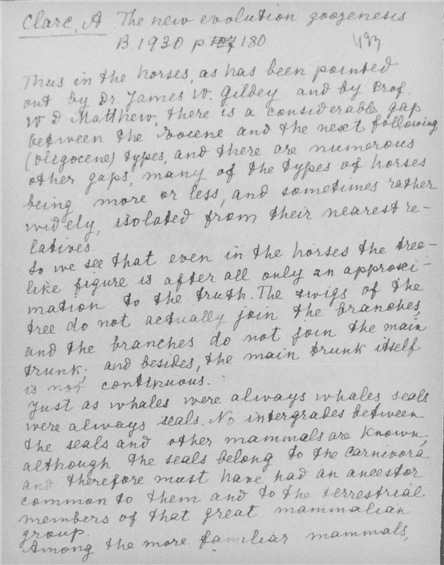 Clarc, A The new evolution zoogenesis
B. 1930 p. 107 180
433
Thus in the horses, as has been pointed
out by Dr. James W. Gidley and by Prof.
W D Matthew, there is a considerable gap
between the Eocene and the next following
(oligocene) types, and there are numerous
other gaps, many of the types of horses
being more or less, and sometimes rather
widely, isolated from their nearest re-
latives.
So we see that even in the horses the tree-
like figure is after all only an approxi-
mation to the truth. The twigs of the
tree do not actually join the branches,
and the branches do not join the main
trunk; and besides, the main trunk itself
is not continuous.
Just as whales were always whales seals
were always seals. No intergrades between
the seals and other mammals are known,
although the seals belong to the carnivora
and therefore must have had an ancestor
common to them and to the terrestrial
members of that great mammalian
group.
Among the more familiar mammals,